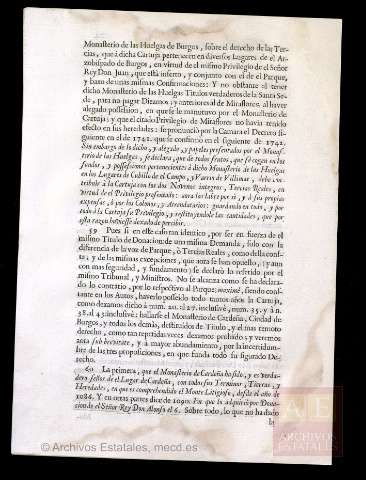 Monasterio de las Huelgas de Burgos, sobre el derecho de las Ter-
cias, que à dicha Cartuja pertenecen en diversos Lugares de el Ar-
zobispado de Burgos, en virtud de el mismo Privilegio de el Señor
Rey Don Juan, que està inserto, y conjunto con el de el Parque,
y baxo de unas mismas Confirmaciones: Y no obstante al tener
dicho Monasterio de las Huelgas Titulos verdaderos de la Santa Se-
de, para no pagar Diezmos; y anteriores al de Miraflores, al haver
alegado possession, en que se le manutuvo por el Monasterio de
Cartuja; y que el citado Privilegio de Miraflores no havia tenido
efecto en sus heredades: se pronunciò por la Camara el Decreto si-
guiente en el de 1741. que se confirmò en el siguiente de 1742.
Sin embargo de lo dicho, y alegado, y papeles presentados por el Monas-
terio de las Huelgas, se declara, que de todos frutos, que se cogen en los
fundos, y possessiones pertenecientes à dicho Monasterio de las Huelgas
en los Lugares de Cubillo de el Campo, y Varrio de Villimar, debe con-
tribuir à la Cartuja con los dos Novenos integros, Tercias Reales, en
virtud de el Privilegio presentado: aora las labre por sì, y à sus propias
expensas, ò por los Colonos, y Arrendatarios: guardando en todo, y por
todo à la Cartuja su Privilegio, y restituyendole las cantidades, que por
esta razon huviesse dexado de percibir.
59 Pues si en este caso tan identico, por ser en fuerza de el
mismo Titulo de Donacion; de una misma Demanda, solo con la
diferencia de la voz de Parque, ò Tercias Reales, como de la confis-
tas; y de las mismas excepciones, que aora se han opuesto, (y aun
con mas seguridad, y fundamento) se declarò lo referido por el
mismo Tribunal, y Ministros. No se alcanza como se ha declara-
do lo contrario, por lo respectivo al Parque; maximè, siendo cons-
tante en los Autos, haverlo posseìdo todo tantos años la Cartuja,
como dexamos dicho à num. 20. al 27. inclusivè, num. 35. y à n.
38. al 43. inclusivè: hallarse el Monasterio de Cardeña, Ciudad de
Burgos, y todos los demàs, destituìdos de Titulo, y el mas remoto
derecho, como tan repetidas veces dexamos probado; y veremos
aora sub brevitate, y à mayor abundamiento, por la incertidum-
bre de las tres proposiciones, en que funda todo su figurado De-
recho.
60 La primera, que el Monasterio de Cardeña ha sido, y es verda-
dero señor de el Lugar de Cardeña, con todos sus Terminos, Tierras, y
Heredades, en que es comprehendido el Monte Litigioso, desde el año de
1086. Y en otras partes dice de 1090. Fix que lo adquiriò por Dona-
cion de el Señor Rey Don Alonso el 6. Sobre todo, lo que no ha dado
ARCHIVOS
ESTATALES
© Archivos Estatales, mecd.es